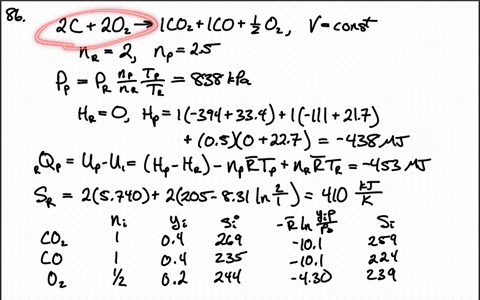 86.
2C + 2O₂ → 1CO₂ + 1CO + ½O₂, V = const
n_R = 2, n_P = 2.5
P_P = P_R n_P/n_R T_P/T_R = 838 kPa
H_R = 0, H_P = 1(-394+33.4) + 1(-111+21.7)
+ (0.5)(0+22.7) = -438 MJ
_RQ_P = U_P - U_1 = (H_P - H_R) - n_P R̄ T_P + n_R R̄ T_R = -453 MJ
S_R = 2(5.740) + 2(205 - 8.31 ln 2/1) = 410 kJ/K
n_i y_i s_i° -R̄ ln y_iP/P_o s_i
CO₂ 1 0.4 269 -10.1 259
CO 1 0.4 235 -10.1 224
O₂ ½ 0.2 244 -4.30 239